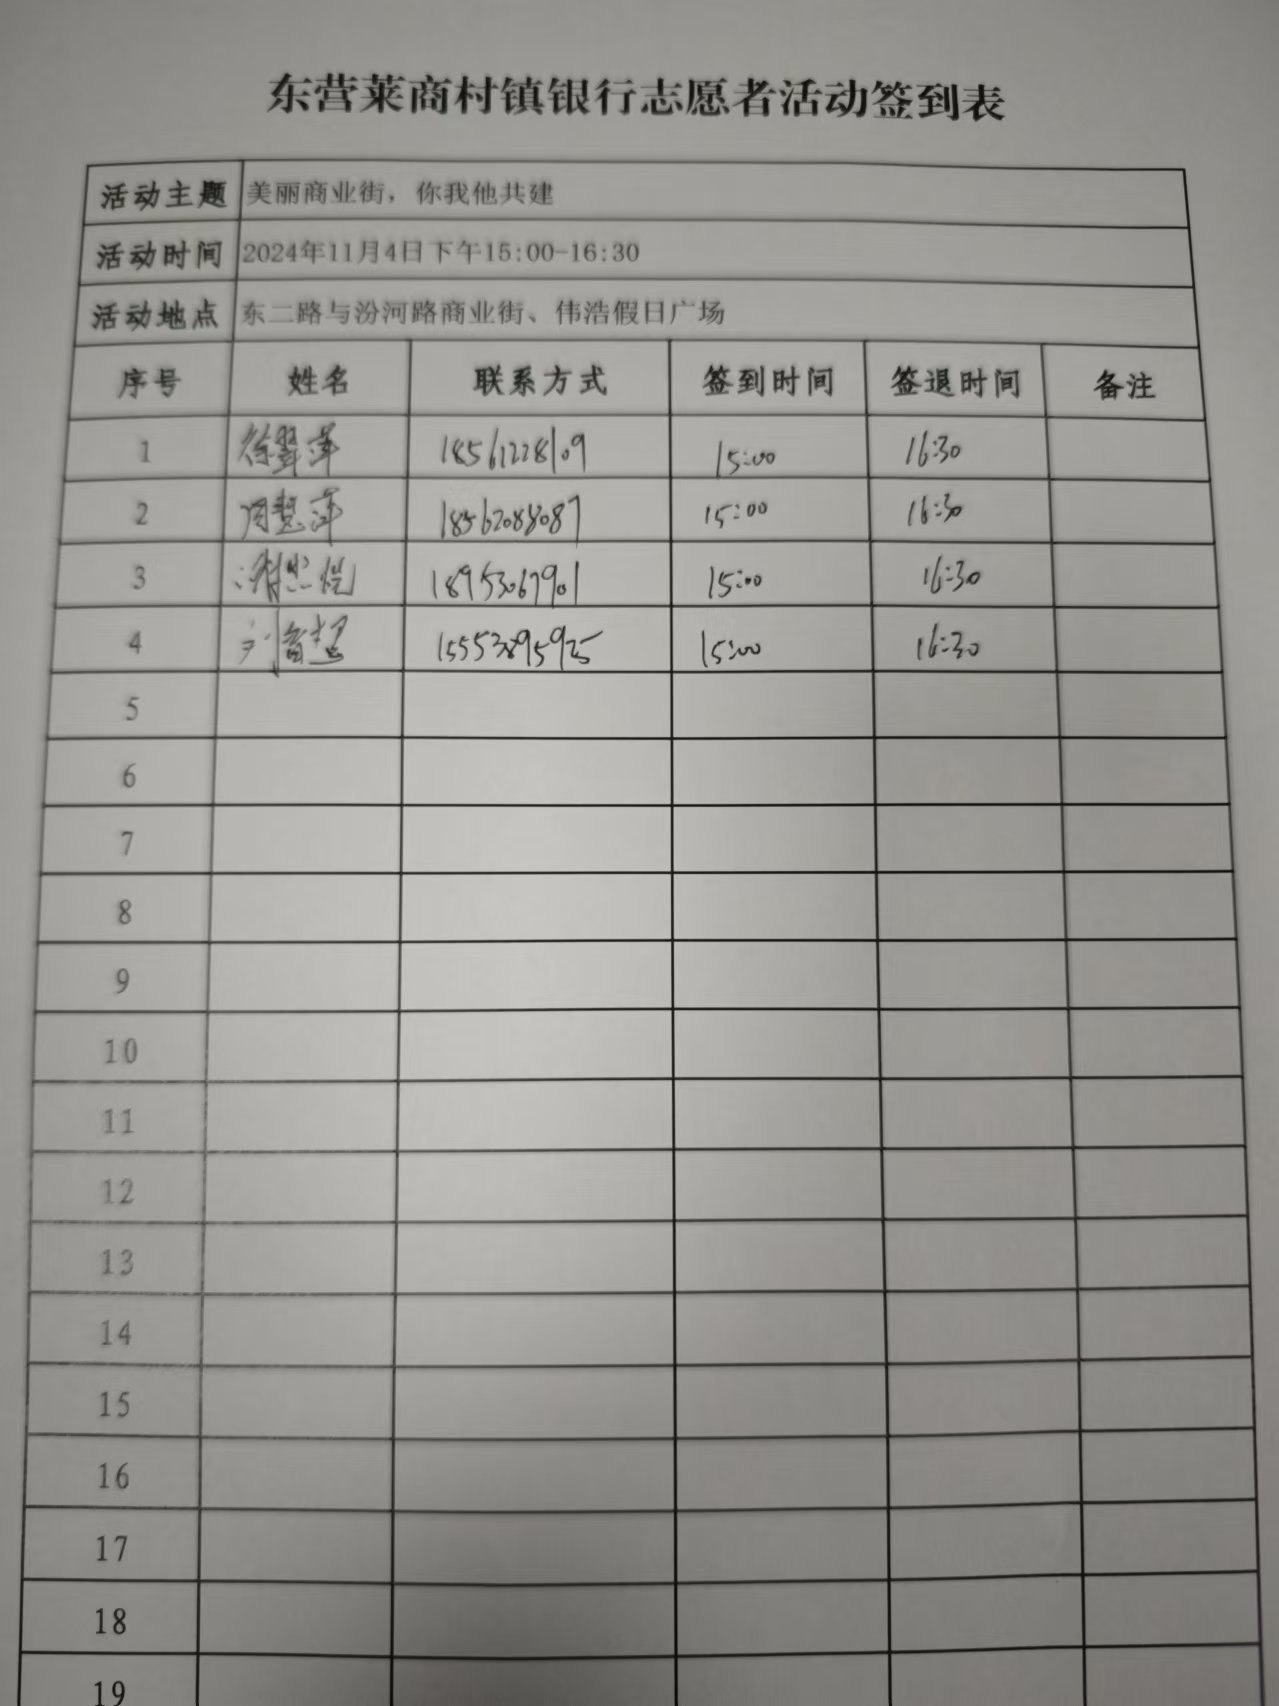 东营莱商村镇银行志愿者活动签到表
活动主题 美丽商业街，你我他共建
活动时间 2024年11月4日下午15:00-16:30
活动地点 东二路与汾河路商业街、伟浩假日广场
序号 姓名 联系方式 签到时间 签退时间 备注
1 徐翠萍 18561228109 15:00 16:30
2 周慧萍 18562088087 15:00 16:30
3 18953067901 15:00 16:30
4 刘 超 15553895925 15:00 16:30
5
6
7
8
9
10
11
12
13
14
15
16
17
18
19